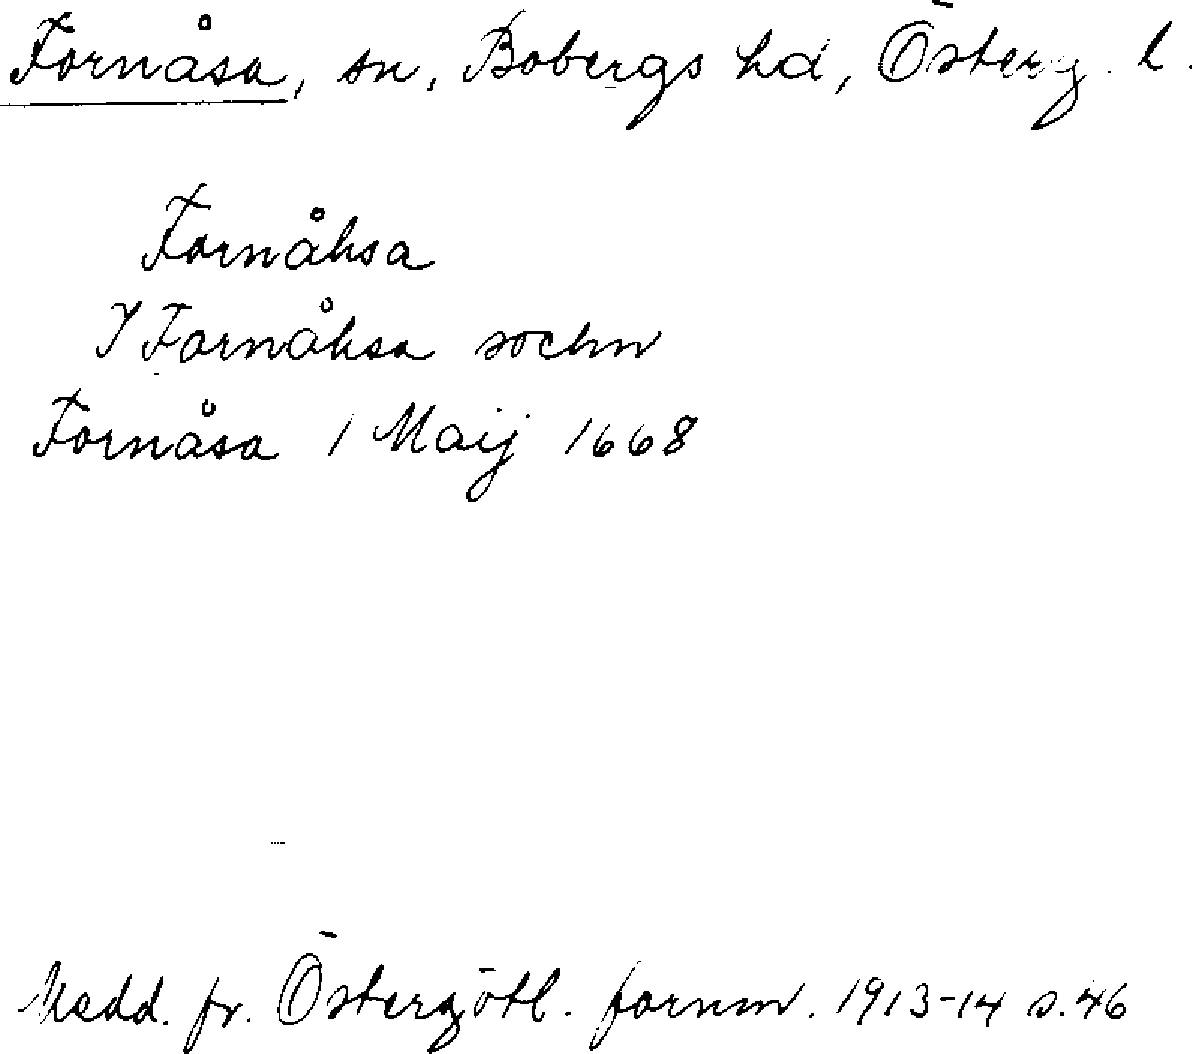 Fornåsa, sn, Bobergs hd, Österg. l.
Fornåhsa
I Fornåhsa sochn
Fornåsa 1 Maij 1668
Medd. fr. Östergötl. fornm. 1913-14 s. 46